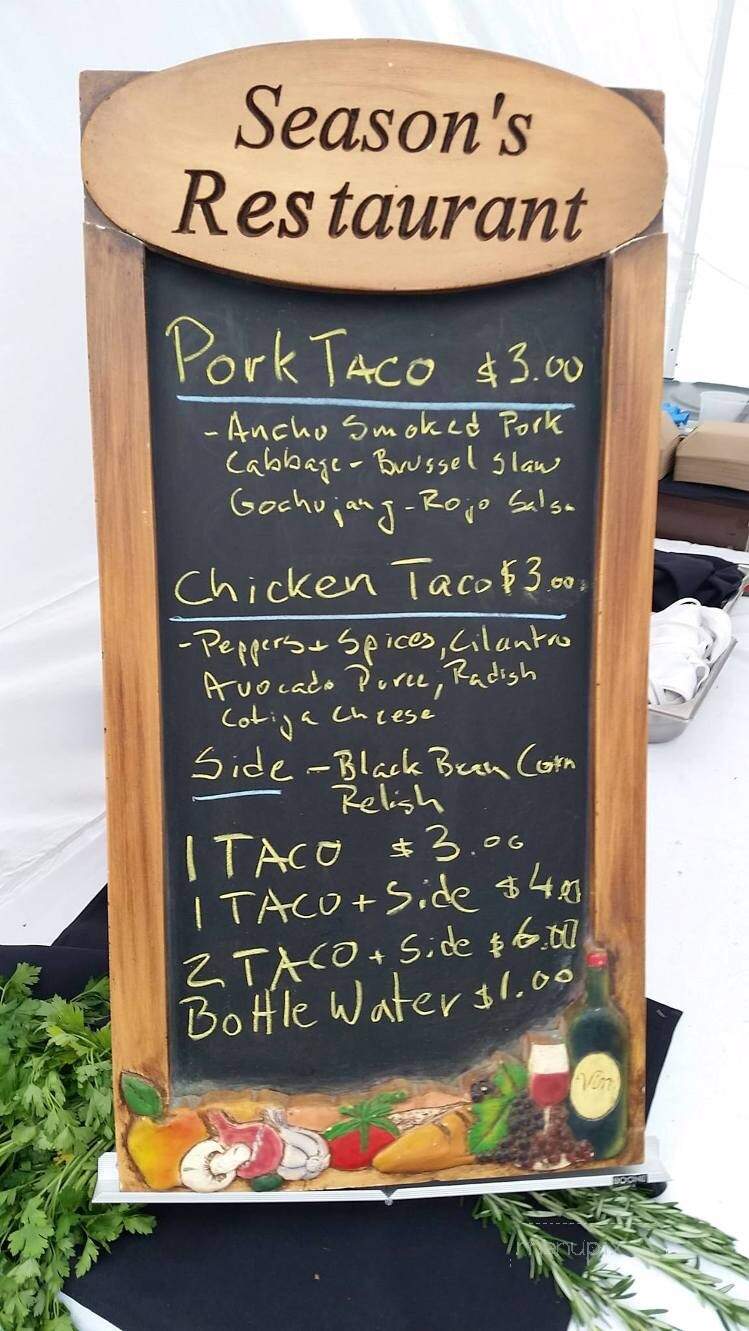 Season's
Restaurant
Pork Taco $3.00
- Ancho Smoked Pork
Cabbage - Brussel Slaw
Gochujang - Rojo Salsa
Chicken Taco $3.00
- Peppers + Spices, Cilantro
Avocado Puree, Radish
Cotija Cheese
Side - Black Bean Corn
Relish
1 TACO $3.00
1 TACO + Side $4.00
2 TACO + Side $6.00
Bottle Water $1.00
Vin
BOONE
menupix